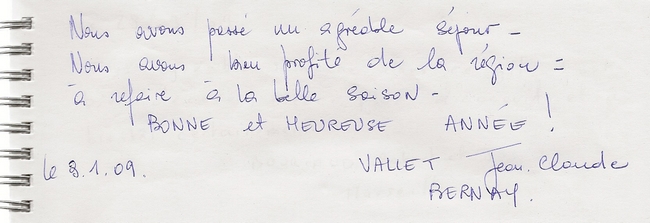 Nous avons passé un agréable séjour -
Nous avons bien profité de la région =
à refaire à la belle saison -
BONNE et HEUREUSE ANNÉE !
le 8.1.09. VALLET Jean-Claude
BERNAY.